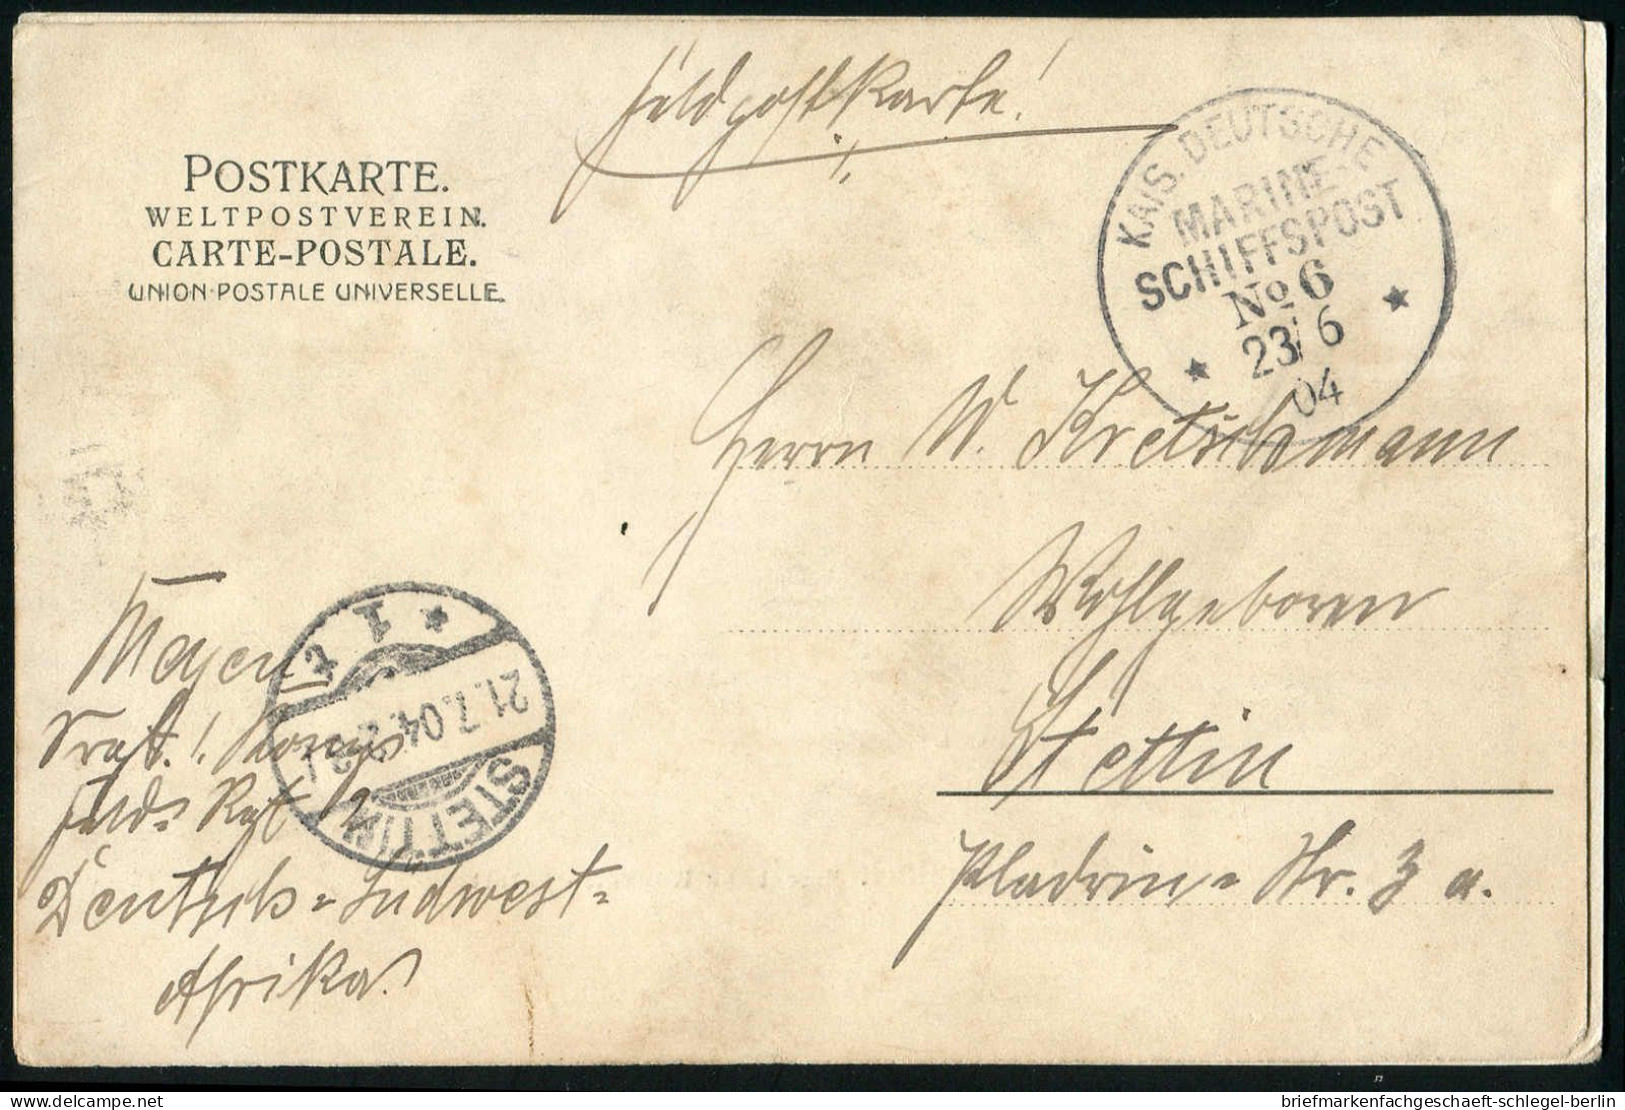 Feldpostkarte!
POSTKARTE.
WELTPOSTVEREIN.
CARTE-POSTALE.
UNION POSTALE UNIVERSELLE.
KAIS. DEUTSCHE
MARINE-
SCHIFFSPOST
No 6
23/6
04
Herrn W. Kretschmann
Wohlgeborn
Stettin
Pladrin- Str. 3 a.
1
STETTIN
21.7.04.
Meyer
Feld- Rgt 2
Deutsch-Südwest-
Afrika
delcampe.net
briefmarkenfachgeschaeft-schlegel-berlin